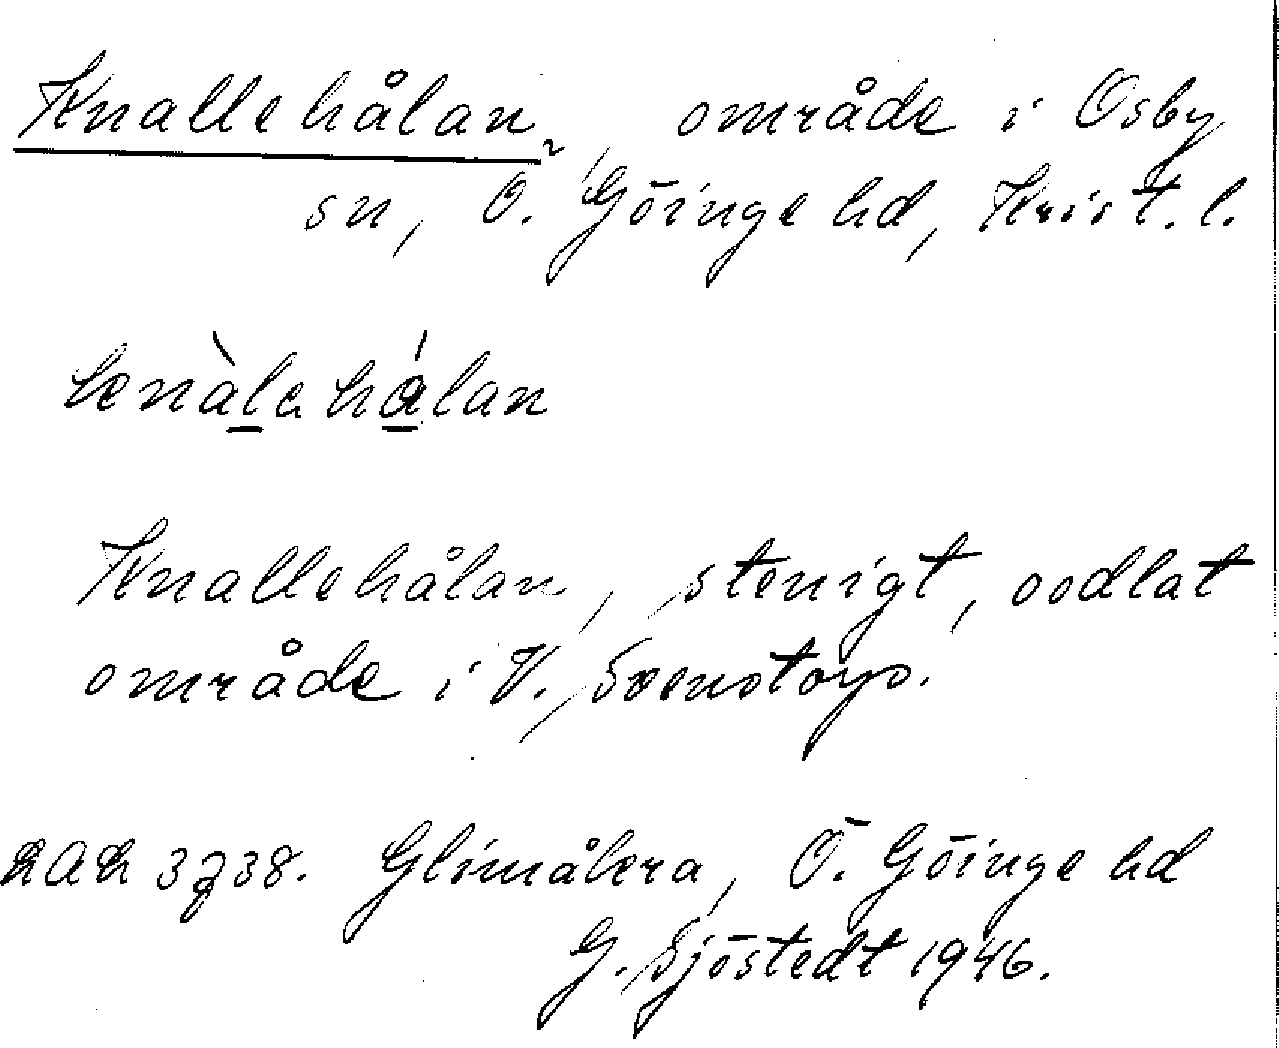 Knallehålan, område i Osby
sn, Ö. Göinge hd, Krist. l.
Knallehålan, stenigt, oodlat
område i V. Svenstorp.
3738. Glimåkra, Ö. Göinge hd
G. Sjöstedt 1946.